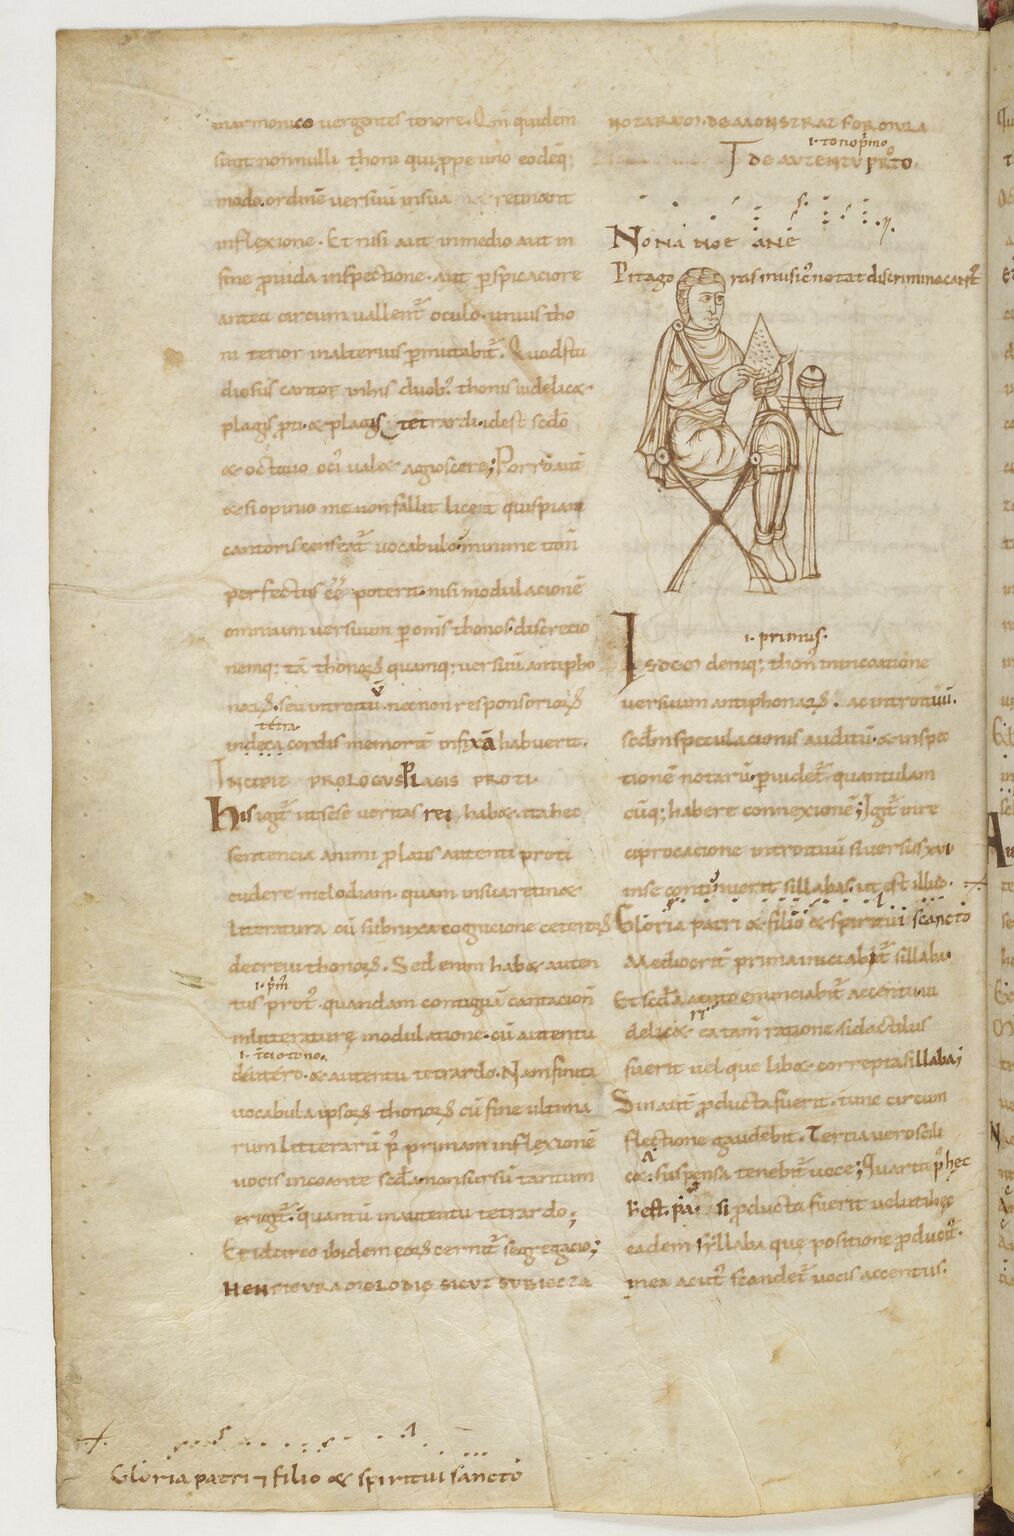 marmonico vergentes tenore. Qm̄ quidem
sunt nonnulli thoni qui ꝓpe uno eodēq;
modo. ordinē versuū insua retineant
inflexione. Et nisi aut inmedio aut in
fine ꝓuida inspectione. aut ꝑspicaciore
antea circum uallent᷑ oculo. unius tho
ni tenor inalterius ꝑmutabit᷑. Quod stu
diosus cantor inhis duob; thonis uidelicet
plagis ꝓti. & plagis tetrardi. idest scd̄o
& octauo oci᷑ ualet agnoscere; Porro aut̄
& si opinio me non fallit liceat quispiam
cantoris censeat᷑ uocabulo. minime tam̄
perfectus eē poterit. nisi modulacionē
omnium uersuum ꝑ om̄s thonos. discretio
nemq; tā thonoꝝ quamq; uersuū antipho
naꝝ. seu introituū. necnon responsorioꝝ
tetra
indeca cordis memoria infixā habuerit.
INCIPIT PROLOGUS PLAGIS PROTI.
His igit᷑ ut sese ueritas rei habet. ita hec
sentencia animi ꝓlatus autenti proti
cudere melodiam. quam insua retinet
literatura cū subnixa cognicione ceteroꝝ
decreui thonoꝝ. Sed enim habet auten
.i. p̄m̄
tus prot᷑. quandam contiguā cantacion̄
inliteraturę modulatione. cū autentu
.i. t̄cio tono.
deutero. & autentu tetrardo. Nam finita
uocabula ipsoꝝ thonoꝝ cū fine ultima
rum litterarū p̄ primam inflexionē
uocis incoante scd̄a non sursū tantum
erigit᷑. quantū inautentu tetrardo;
Et idcirco ibidem eoꝝ cernit᷑ segregacio;
HEN FIGURA MELODIE SICUT SUBIECTA
NOTARUM. DEMONSTRAT FORMULA
.i. tono p̄mo
DE AUTENTU PROTO.
NoNa Noe aNe
Pitagoras music᷑ notat discrimina cant᷑
.i. primus.
Isdem deniq; thon᷑ inincoatione
uersuum antiphonaꝝ. ac introituū.
scd̄m speculacionis auditū. & inspec
tionē notarū. ꝑuidet᷑ quantulam
cūq; habere connexionē; Igit᷑ inre
ciprocacione introituū si uersus xvi
inse continuerit sillabas. ut est illud.
Gloria patri & filio & spiritui sancto
Mediocrit᷑ prima iniciabit᷑ sillaba.
Et scd̄a acuto enunciabit᷑ accentu. ui
delicet ea tam̄ ratione si dactilus
fuerit uel que libet correpta sillaba;
Sin aut̄ ꝓducta fuerit. tunc circum
flectione gaudebit. Tertia uero scili
cet. suspensa tenebit᷑ uoce; Quarta p᷑ hęc
si ꝓducta fuerit uelut hęc
eadem sẏllaba que positione ꝓducit᷑.
mea acut᷑ scandet᷑ uocis accentus.
Gloria patri ⁊ filio & spiritui sancto